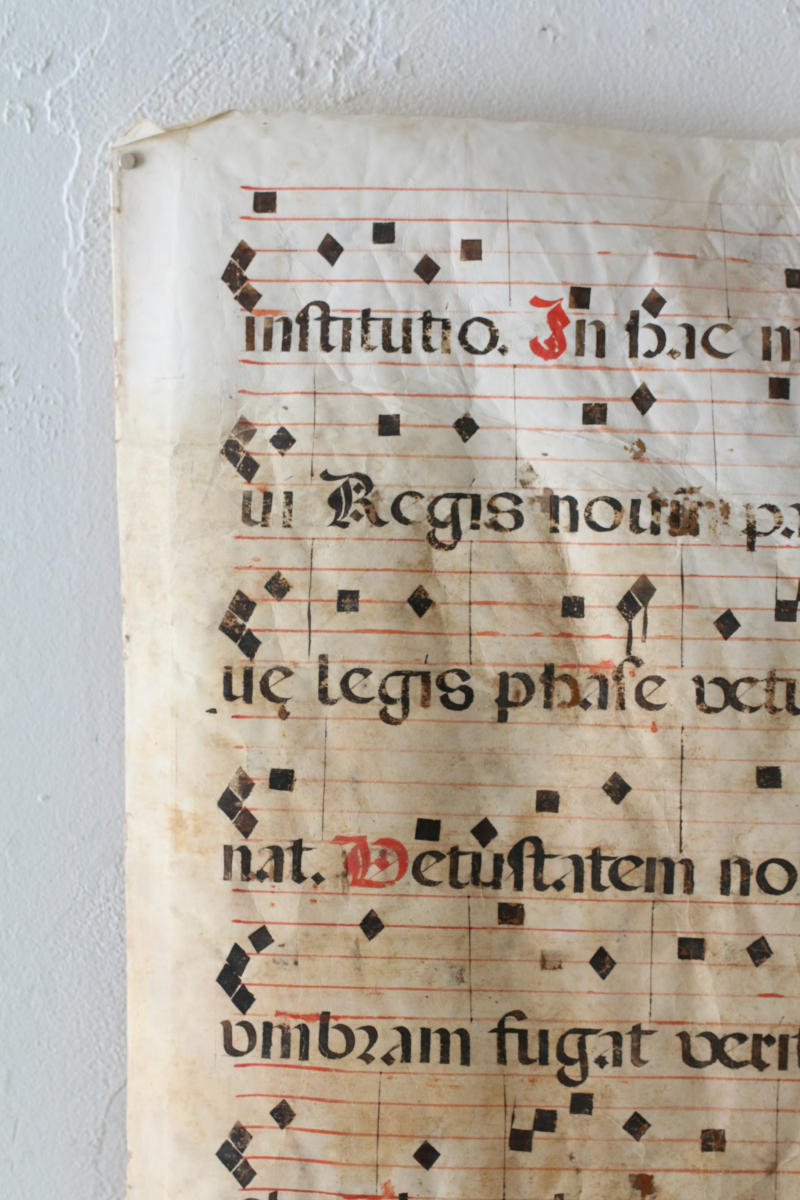 institutio. In hac m
ui Regis nouum pa
uę legis phase uetu
nat. Vetustatem no
vmbram fugat verit